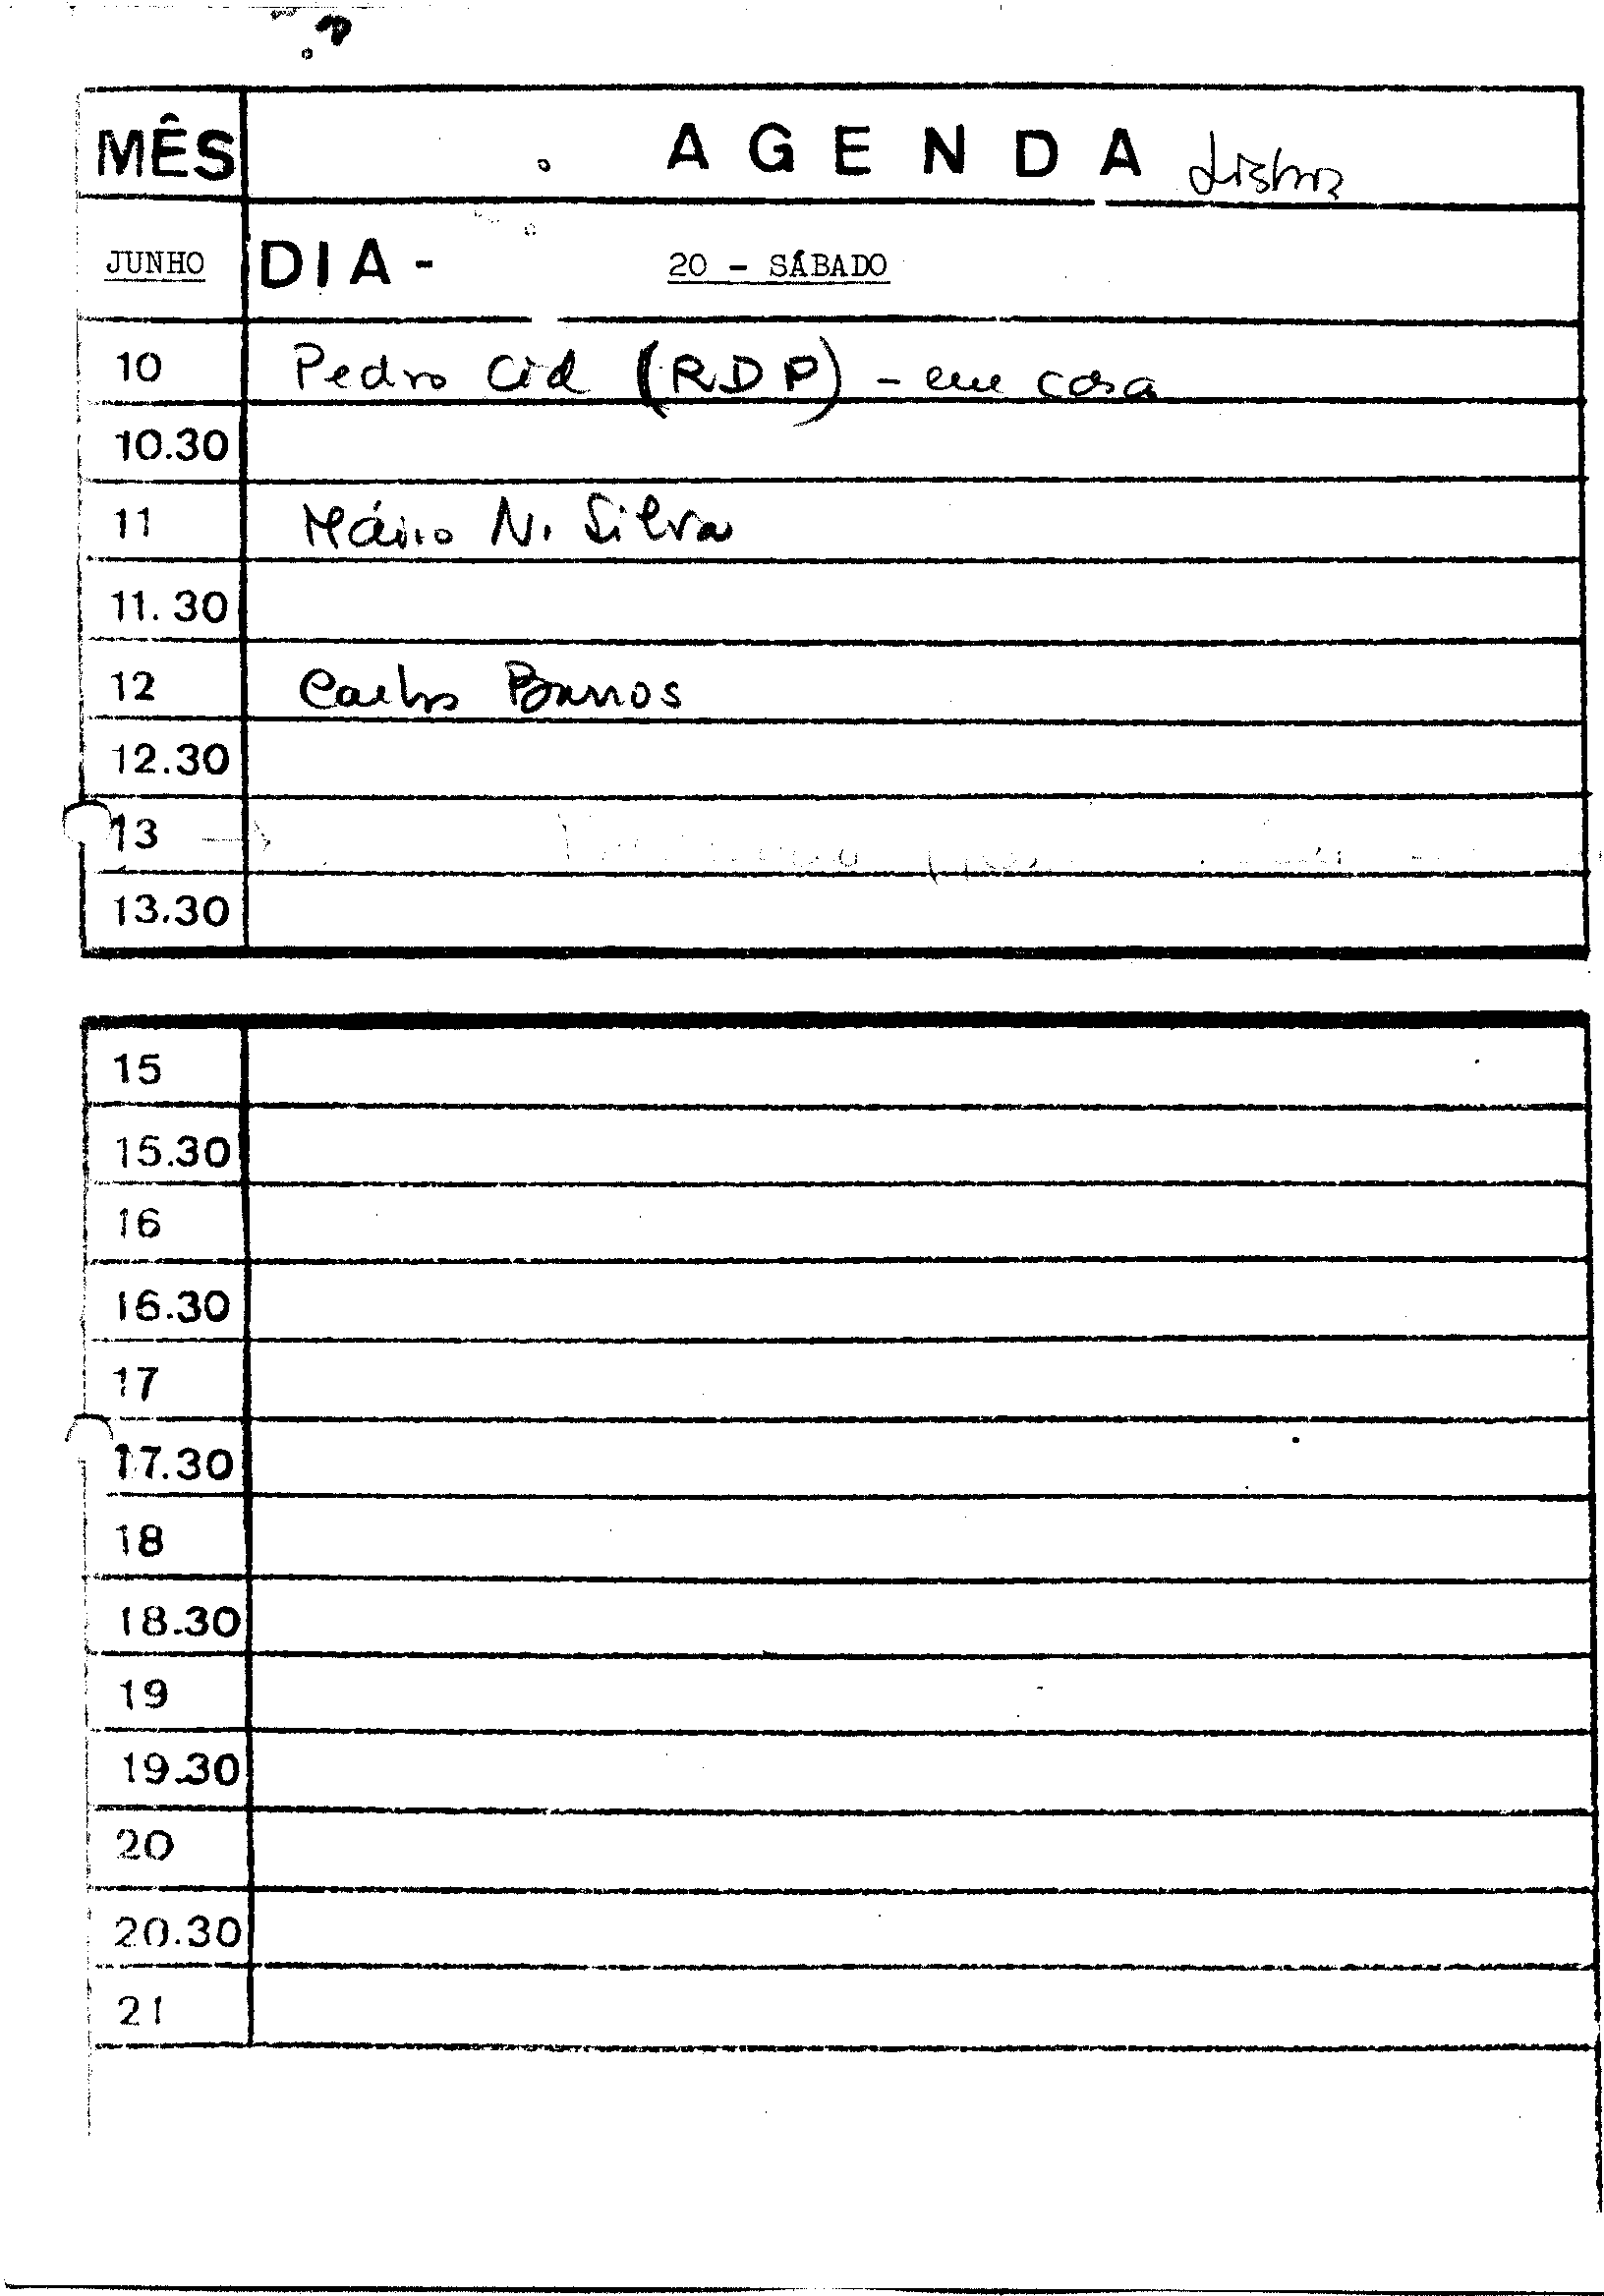 MÊS A G E N D A Lisboa
JUNHO DIA - 20 - SÁBADO
10 Pedro Cid (RDP) - em casa
10.30
11 Mário N. Silva
11.30
12 Carlos Barros
12.30
13
13.30
15
15.30
16
16.30
17
17.30
18
18.30
19
19.30
20
20.30
21